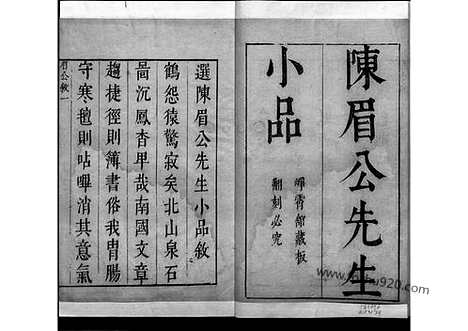 陳眉公先生
小品
崢霄館藏板
翻刻必究
選陳眉公先生小品敘
鶴怨猿驚寂矣北山泉石
啚沉鳳杳卑哉南國文章
趨捷徑則簿書俗我胃腸
守寒氊則呫嗶消其意氣
眉公敘 一